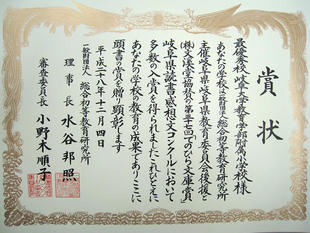 賞状
最優秀校 岐阜大学教育学部附属小学校様
あなたの学校は一般財団法人総合初等教育研究所
主催岐阜県岐阜県教育委員会後援と
(株)文溪堂協敘の第二十七回てのひら文庫賞
岐阜県読書感想文コンクールにおいて
多数の入賞を得られましたこれひとえに
あなたの学校の教育の成果でありここに
頭書の賞を贈り顕彰します
平成二十八年十二月四日
一般財団法人総合初等教育研究所
理事長 水谷邦照
審査委員長 小野木順子